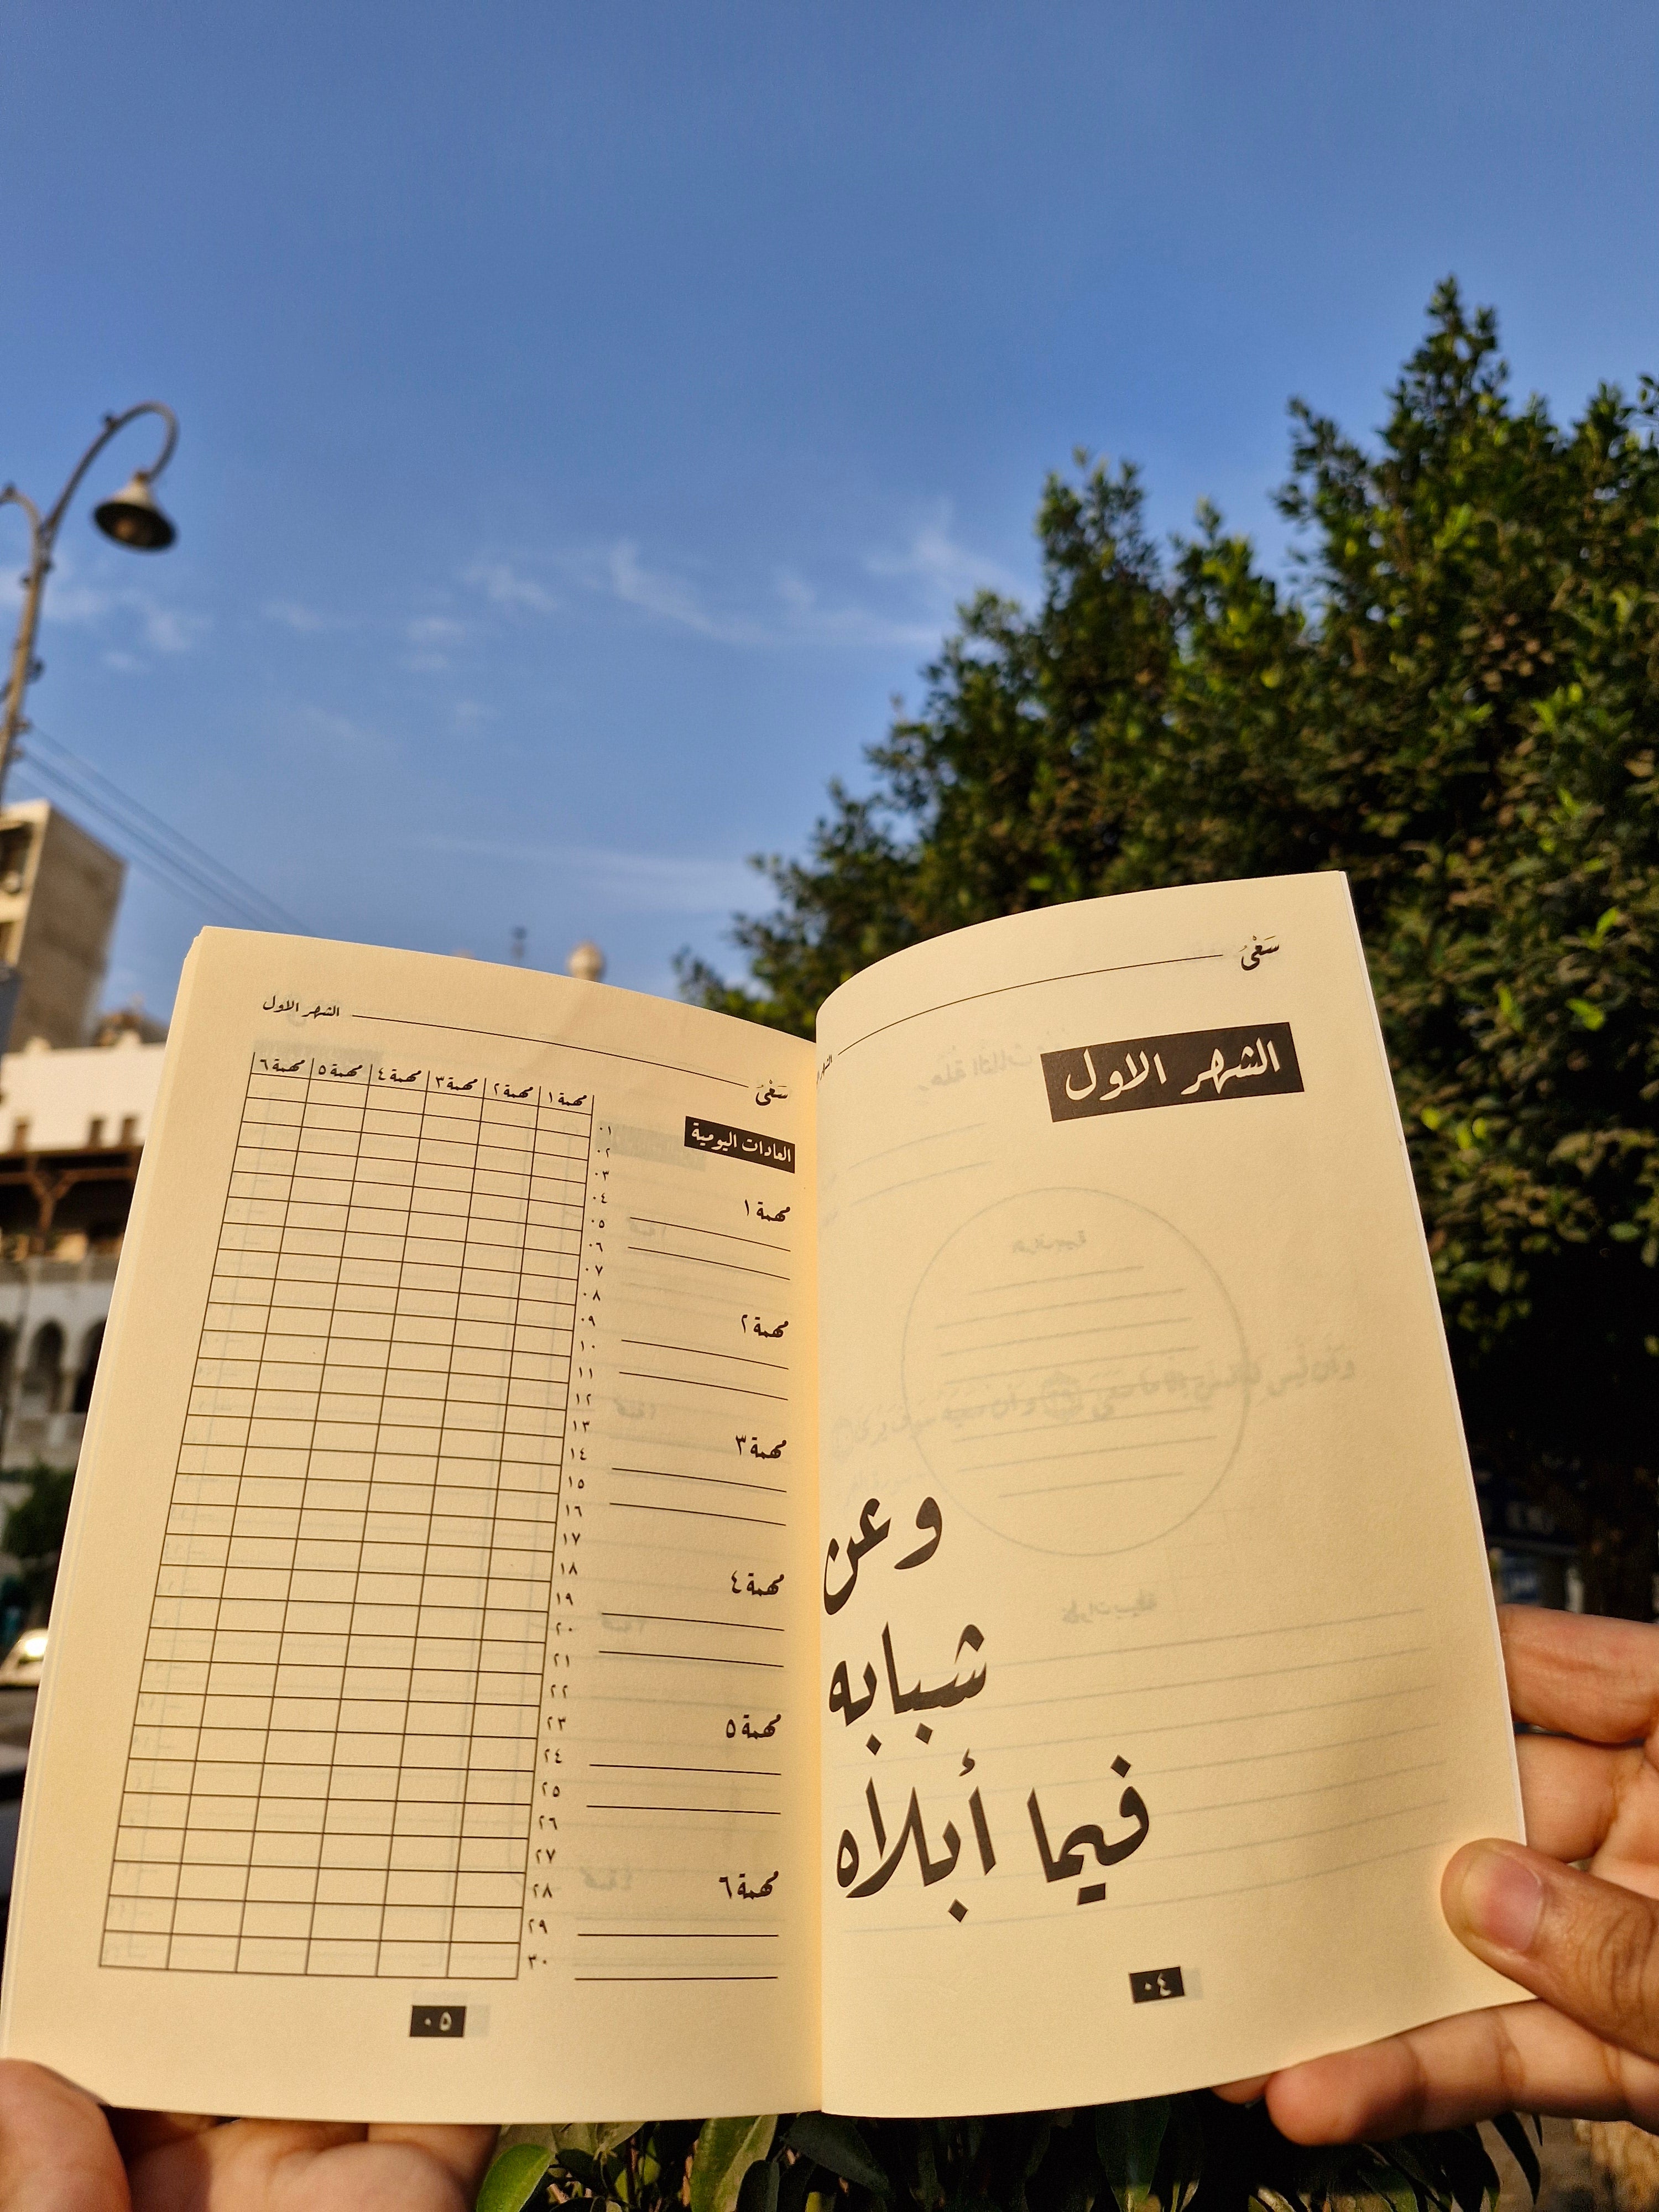 سَعْيٌ
الشهر الاول
وعن
شبابه
فيما أبلاه
٠٤
الشهر الاول
سَعْيٌ
العادات اليومية
مهمة ١
مهمة ٢
مهمة ٣
مهمة ٤
مهمة ٥
مهمة ٦
مهمة ١ مهمة ٢ مهمة ٣ مهمة ٤ مهمة ٥ مهمة ٦
٠١
٠٢
٠٣
٠٤
٠٥
٠٦
٠٧
٠٨
٠٩
١٠
١١
١٢
١٣
١٤
١٥
١٦
١٧
١٨
١٩
٢٠
٢١
٢٢
٢٣
٢٤
٢٥
٢٦
٢٧
٢٨
٢٩
٣٠
٠٥